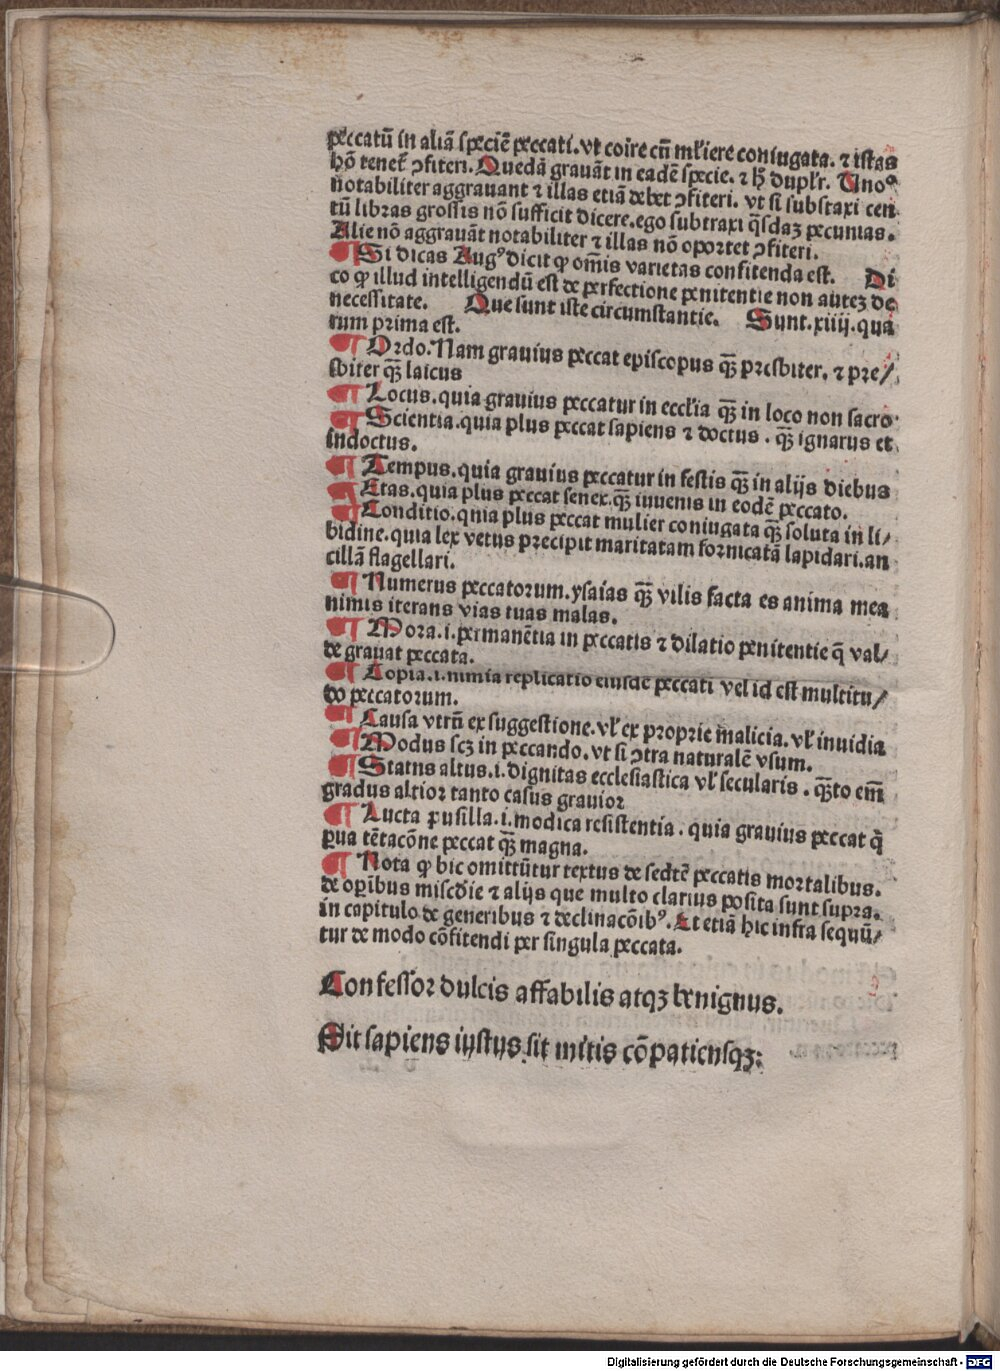 peccatū in aliā speciē peccati. vt coire cū mł'iere coniugata. ⁊ istas
hō tenet᷑ ꝯfiteri. Quedā grauāt in eadē specie. ⁊ h̄ dupl'r. Uno⁰
notabiliter aggrauant ⁊ illas etiā debet ꝯfiteri. vt si substaxi cen
tū libras grossis nō sufficit dicere. ego subtraxi q̄sdaꝫ pecunias.
Alie nō aggrauāt notabiliter ⁊ illas nō oportet ꝯfiteri.
¶ Si dicas Augꝰ dicit ꝙ om̄is varietas confitenda est. Di
co ꝙ illud intelligendū est de perfectione penitentie non auteꝫ de
necessitate. Que sunt iste circumstantie. Sunt. xiiij. qua
rum prima est.
¶ Ordo. Nam grauius peccat episcopus q̄ꝫ presbiter. ⁊ pre/
sbiter q̄ꝫ laicus
¶ Locus. quia grauius peccatur in eccl'ia q̄ꝫ in loco non sacro
¶ Scientia. quia plus peccat sapiens ⁊ doctus. q̄ꝫ ignarus et
indoctus.
¶ Tempus. quia grauius peccatur in festis q̄ꝫ in alijs diebus
¶ Etas. quia plus peccat senex. q̄ꝫ iuuenis in eodē peccato.
¶ Conditio. quia plus peccat mulier coniugata q̄ꝫ soluta in li/
bidine. quia lex vetus precipit maritatam fornicatā lapidari. an
cillā flagellari.
¶ Numerus peccatorum. ysaias q̄ꝫ vilis facta es anima mea
nimis iterans vias tuas malas.
¶ Mora. i. permanētia in peccatis ⁊ dilatio penitentie q̄ val/
de grauat peccata.
¶ Copia. i. nimia replicatio eiusdē peccati vel id est multitu/
do peccatorum.
¶ Causa vtrū ex suggestione. vl' ex proprie malicia. vl' inuidia
¶ Modus scꝫ in peccando. vt si ꝯtra naturalē vsum.
¶ Status altus. i. dignitas ecclesiastica vl' secularis. q̄ꝫto em̄
gradus altior tanto casus grauior
¶ Lucta pusilla. i. modica resistentia. quia grauius peccat q̄
ꝑua tētacōne peccat q̄ꝫ magna.
¶ Nota ꝙ hic omittūtur textus de septē peccatis mortalibus.
de oꝑibus mis᷑die ⁊ alijs que multo clarius posita sunt supra.
in capitulo de generibus ⁊ declinacōibꝰ. Et etiā hic infra sequū/
tur de modo cōfitendi per singula peccata.
Confessor dulcis affabilis atqꝫ benignus.
Sit sapiens iustus sit mitis cōpatiensqꝫ:
Digitalisierung gefördert durch die Deutsche Forschungsgemeinschaft - DFG